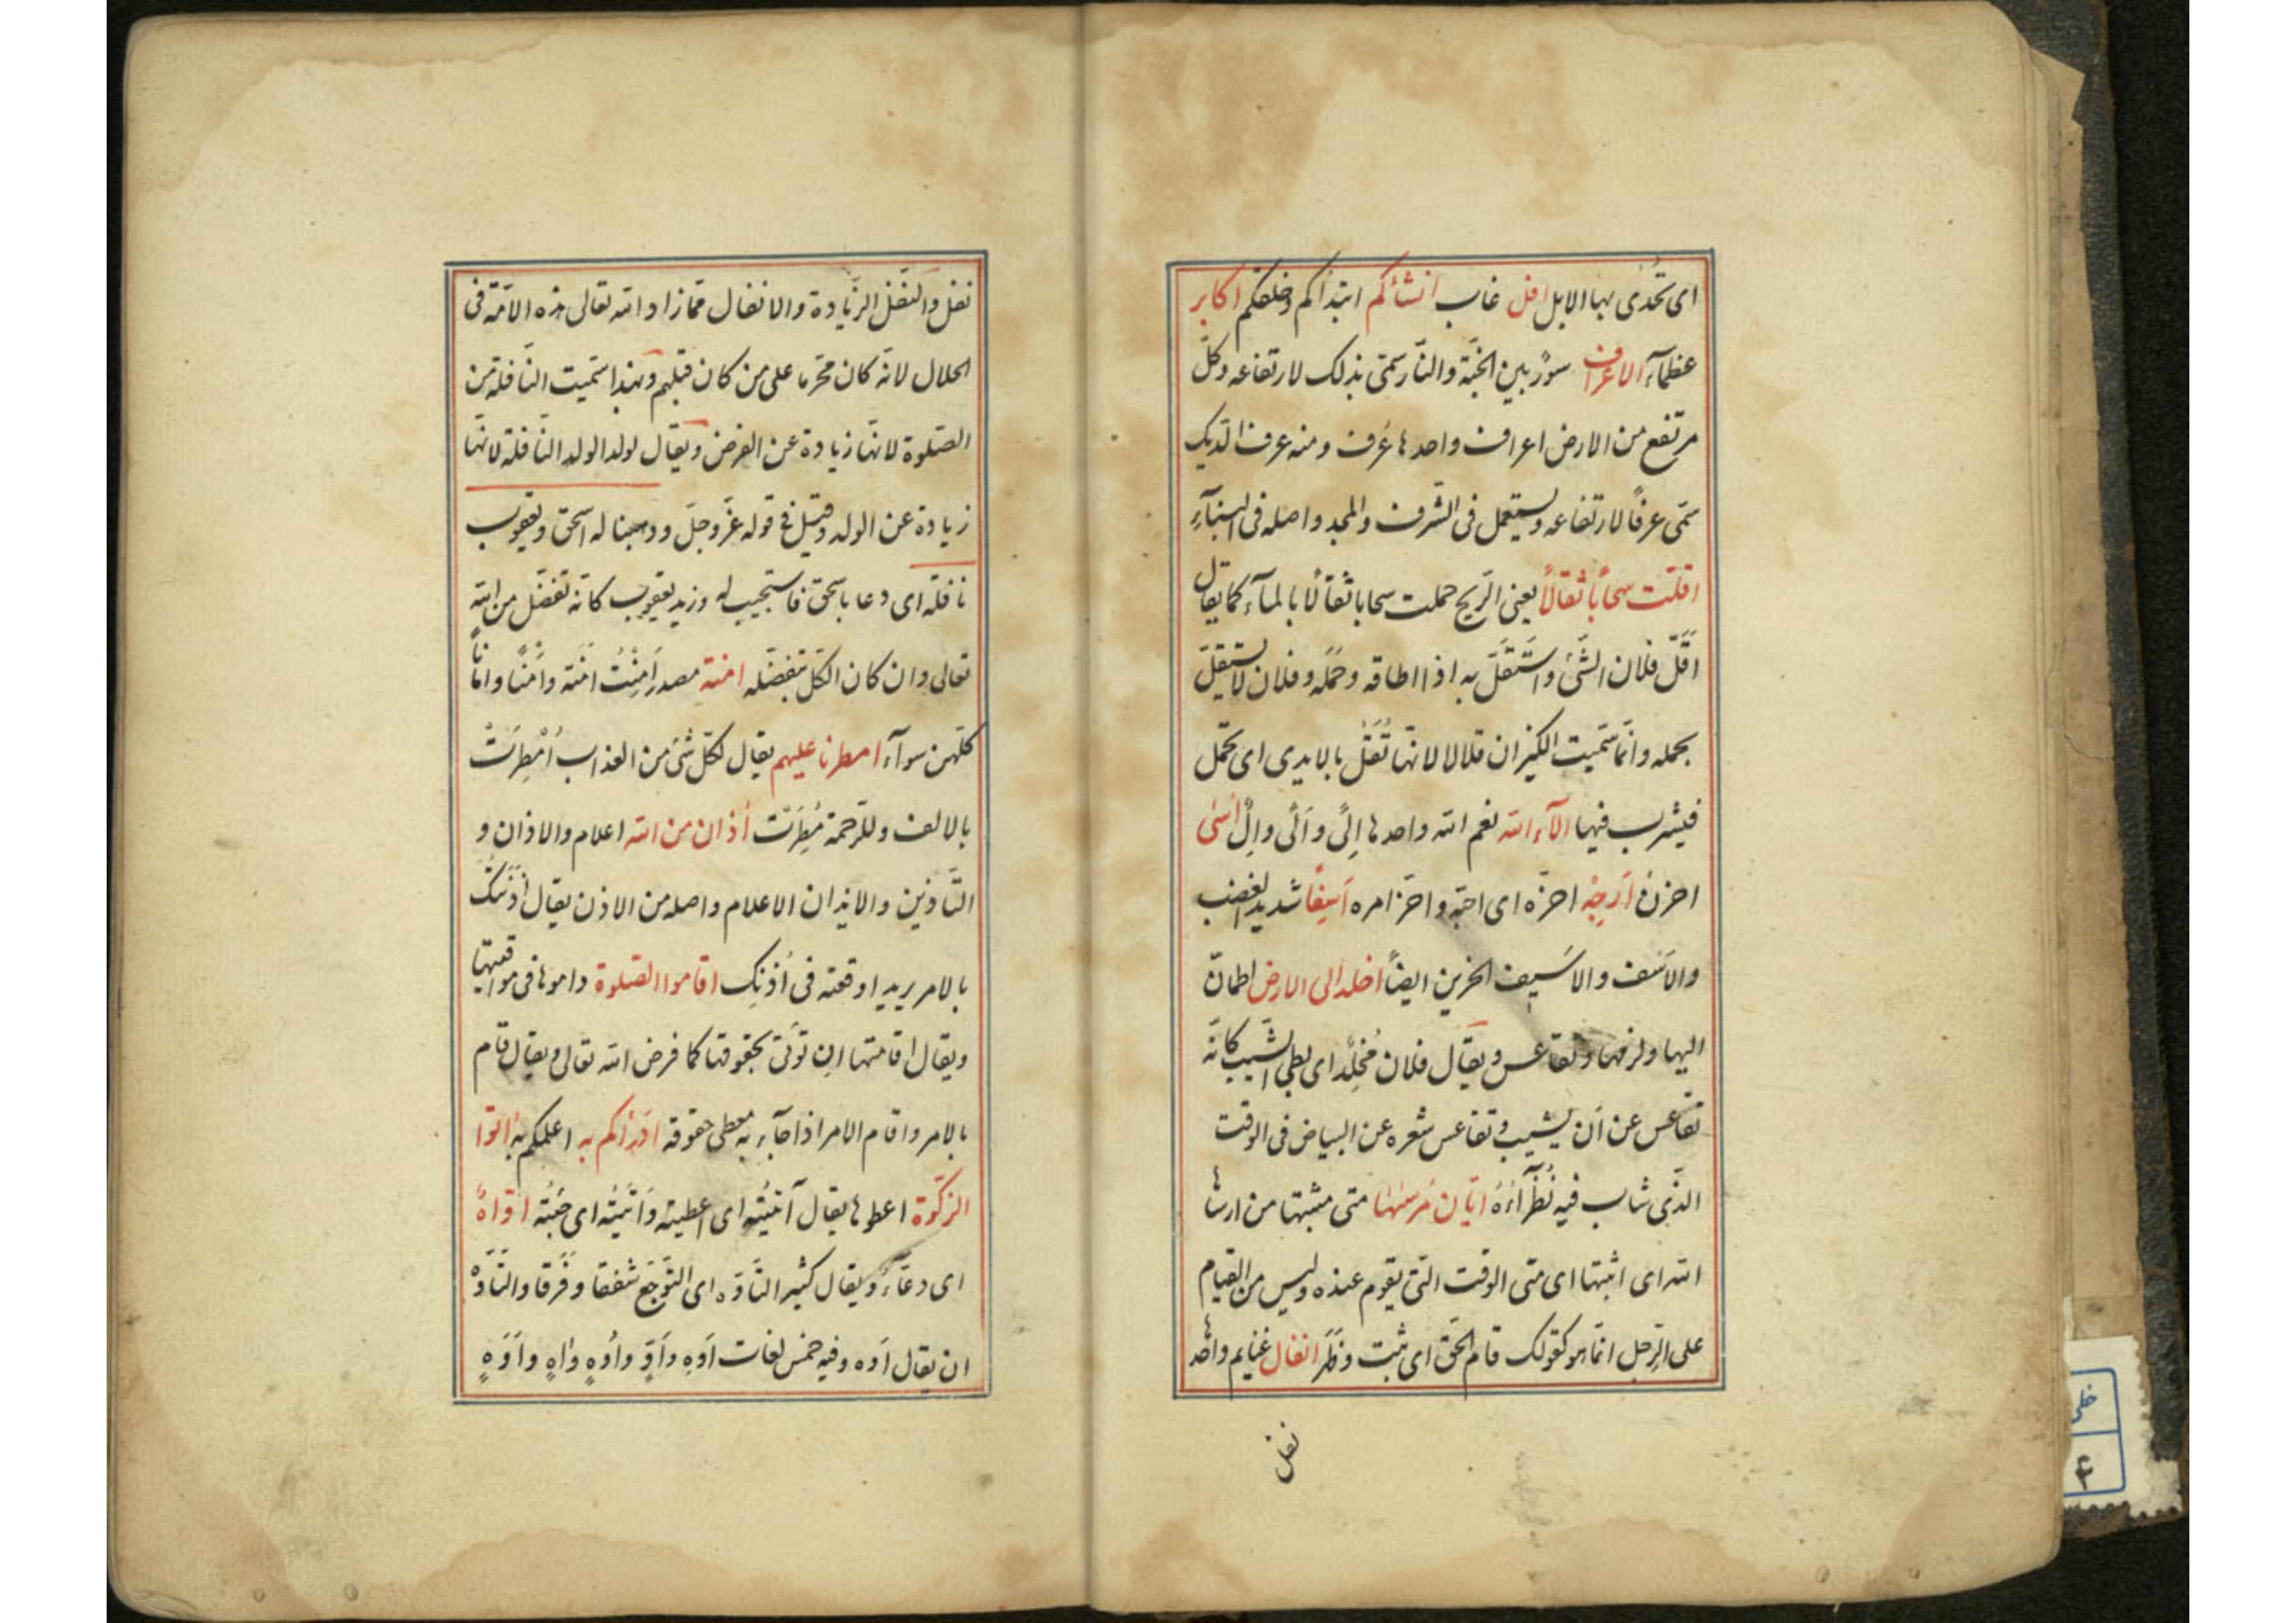 ای تحدی بها الابل افل غاب انشاکم ابتداکم وخلقکم اکابر
عظمآء الاعراف سور بین الجنّة والنّار سمّی بذلک لارتفاعه وکلّ
مرتفع من الارض اعراف واحدها عُرف ومنه عرف الدّیک
سمّی عرفاً لارتفاعه ویستعمل فی الشّرف والمجد واصله فی البنآءِ
اقلّت سحاباً ثقالاً یعنی الرّیح حملت سحابا ثقالا بالمآء کما یقال
اَقَلَّ فلان الشّئ واسْتَقَلَّ به اذا اطاقه وحمله وفلان لا یستقلّ
بحمله وانّما سمّیت الکیزان قلالا لانّها تُقَلُّ بالایدی ای تحمل
فیشرب فیها الآء الله نعم الله واحدها اِلًی واَلًی واِلْیٌ اسٰی
احزن اَرجِهْ احزه ای احبه واخر امره اَسِفًا شدید الغضب
والاَسَف والاَسیف الحزین ایضاً اخلد الی الارض اطمانّ
الیها ولزمها وتقاعس ویقال فلان مُخلِد ای بطی الشّیب کانّه
تقاعس عن اَن یشیب وتقاعس شعره عن البیاض فی الوقت
الذّی شاب فیه نُظَرآءُهُ ایّان مُرسٰها متی مثبتها من ارساها
الله ای اثبتها ای متی الوقت التی یقوم عنده ولیس من القیام
علی الرّجل انّما هو کقولک قام الحقّ ای ثبت وظَهَر انفال غنایم واحدها
نفل
نفل والنّفل الزّیادة والانفال ممّا زاد الله تعالی هذه الامّة فی
الحلال لانّه کان محّرما علی من کان قبلهم وبهذا سمّیت النّافلة من
الصّلوة لانّها زیادة عن الفرض ویقال لولد الولد النّافلة لانّها
زیادة عن الولد وقیل فی قوله عزّ وجلّ ووهبنا له اسحق ویعقوب
نافلة ای دعا باسحق فاستجیب له وزید یعقوب کانّه تفضّل من الله
تعالی وان کان الکلّ بتفضّله امنة مصدر اَمِنْتُ امَنَة واَمْنًا واماناً
کلّهن سوآء امطرنا علیهم یقال لکلّ شئ من العذاب اُمْطِرَتْ
بالالف وللرّحمة مُطِرَتْ اذان من الله اعلام والاذان و
التّاذین والایذان الاعلام واصله من الاذن یقال اذنتک
بالامر یرید اوقعته فی اُذنک اقاموا الصّلوة داموها فی مواقیتها
ویقال اقامتها ان تؤتی بحقوقها کما فرض الله تعالی ویقال قام
بالامر واقام الامر اذا جآء به معطی حقوقه اَدْرٰاکم به اعلمکم به اتوا
الزّکوة اعطوها یقال آتَیْتُه ای اعطیته واَتَیْتُه ای جئته اوّاهٌ
ای دعّآءٌ ویقال کثیر التّاوّه ای التّوجّع شفقا وفَرَقا والتّاوّه
ان یقال اَوّه وفیه خمس لغات اَوهِ واَوٍّ واُوهٍ واٰهٍ واَوّهٍ